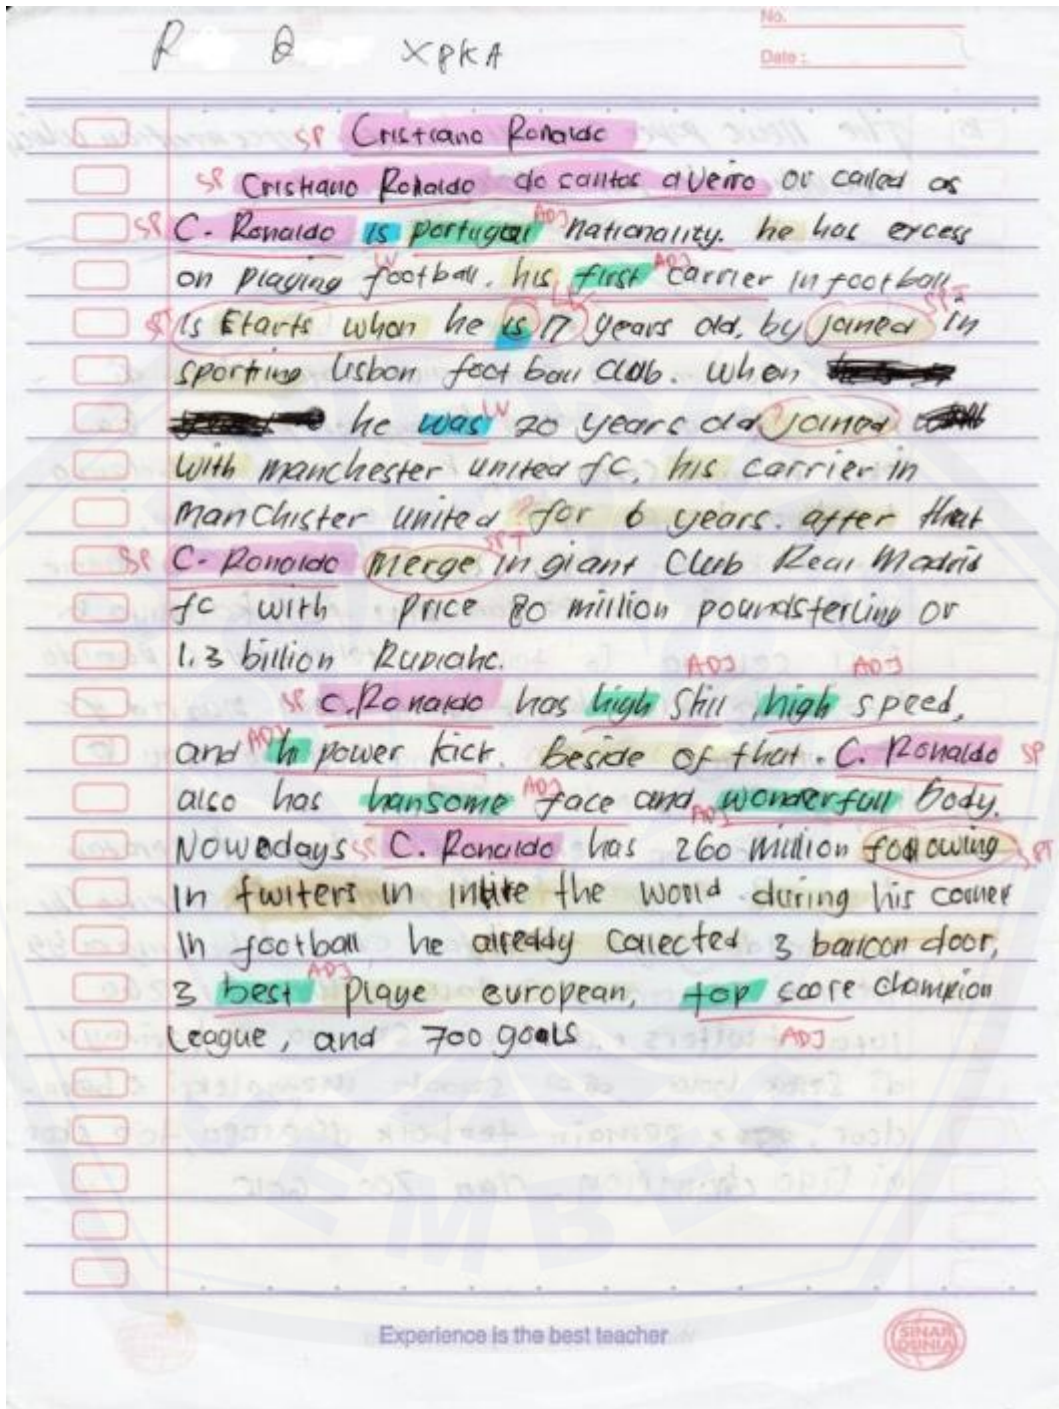 No.
Date :
R Q XPKA
SP Cristiano Ronaldo
SP Cristiano Ronaldo do santos aveiro or called as
SP C. Ronaldo is portugal ADJ nationality. he has excess
on playing football. his first ADJ carrier in football
is starts when he is 17 years old, by joined in
sporting lisbon foot ball club. when
he was LV 20 years old joined
with manchester united fc, his carrier in
Manchister united for 6 years. after that
SP C. Ronaldo merge in giant Club Real Madrid
fc with price 80 million poundsterling or
1.3 billion Rupiahc.
ADJ ADJ
SP C.Ronaldo has high skill, high speed,
and ADJ h power kick. Beside of that. C. Ronaldo SP
also has hansome ADJ face and ADJ wonderfull body.
Nowedays SP C. Ronaldo has 260 million following
in twiters in intire the world during his
in football he alreddy collected 3 balloon door,
3 best ADJ playe european, top score champion
League, and 700 goals ADJ
Experience is the best teacher
SINAR
DUNIA